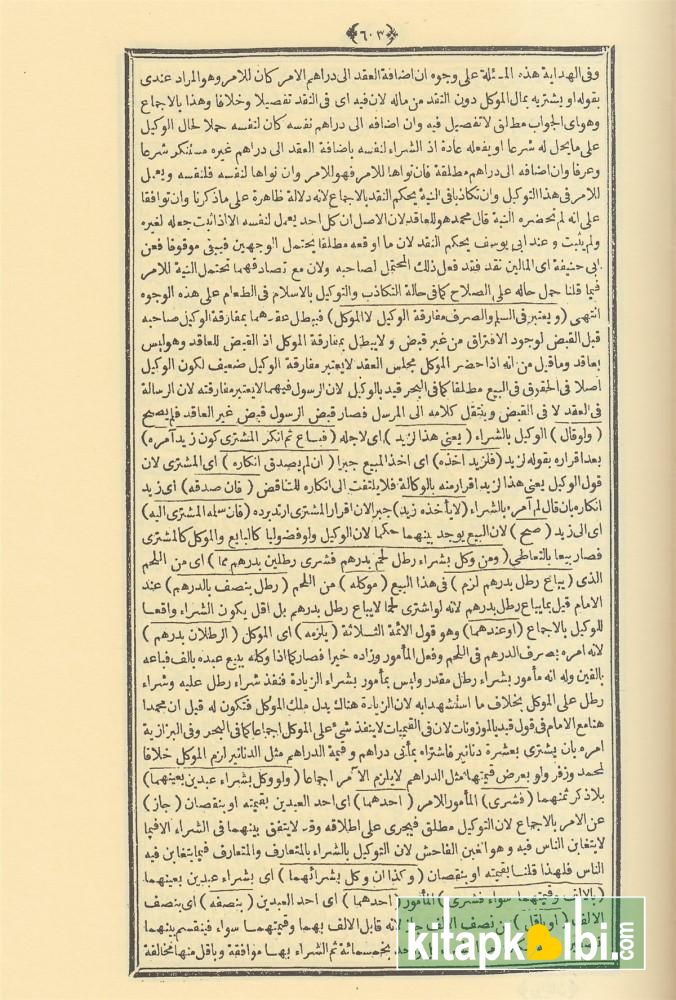 ﴿٦٠٣﴾
وفى الهداية هذه المسئلة على وجوه ان اضافة العقد الى دراهم الآمر كان للآمر وهو المراد عندى
بقوله او يشتريه بمال الموكل دون النقد من ماله لان فيه اى فى النقد تفصيلا وخلافا وهذا بالاجماع
وهو اى الجواب مطلق لا تفصيل فيه وان اضافه الى دراهم نفسه كان لنفسه حملا لحال الوكيل
على ما يحل له شرعا او يفعله عادة اذ الشراء لنفسه باضافة العقد الى دراهم غيره مستنكر شرعا
وعرفا وان اضافه الى دراهم مطلقة فان نواها للآمر فهو للآمر وان نواها لنفسه فلنفسه ويعمل
للآمر فى هذا التوكيل وان تكاذبا فى النية يحكم النقد بالاجماع لانه دلالة ظاهرة على ما ذكرنا وان توافقا
على انه لم تحضره النية قال محمد هو للعاقد لان الاصل ان كل احد يعمل لنفسه الا اذا ثبت جعله لغيره
ولم يثبت وعند ابى يوسف يحكم النقد لان ما اوقعه مطلقا يحتمل الوجهين فيبقى موقوفا فمن
اى المالين نقد فقد فعل ذلك المحتمل لصاحبه ولان مع تصادقهما تحتمل النية للآمر
فيما قلنا حمل حاله على الصلاح كما فى حالة التكاذب والتوكيل بالاسلام فى الطعام على هذه الوجوه
انتهى (ويعتبر فى السلم والصرف مفارقة الوكيل لا الموكل) فيبطل عقدهما بمفارقة الوكيل صاحبه
قبل القبض لوجود الافتراق من غير قبض ولا يبطل بمفارقة الموكل اذ القبض للعاقد وهو ليس
بعاقد وما قيل من انه اذا حضر الموكل مجلس العقد لا يعتبر مفارقة الوكيل ضعيف لكون الوكيل
اصلا فى الحقوق فى البيع مطلقا كما فى البحر قيد بالوكيل لان الرسول فيهما لا يعتبر مفارقته لان الرسالة
فى العقد لا فى القبض وينتقل كلامه الى المرسل فصار قبض الرسول قبض غير العاقد فلم يصح
(ولو قال) الوكيل بالشراء (بعنى هذا لزيد) اى لاجله (فباع ثم انكر المشترى كون زيد آمره)
بعد اقراره بقوله لزيد (فلزيد اخذه) اى اخذ المبيع جبرا (ان لم يصدق انكاره) اى المشترى لان
قول الوكيل بعنى هذا لزيد اقرار منه بالوكالة فلا يلتفت الى انكاره للتناقض (فان صدقه) اى زيد
انكاره بان قال لم آمره بالشراء (لا يأخذه زيد) جبرا لان اقرار المشترى ارتد برده (فان سلمه المشترى اليه)
اى الى زيد (صح) لان البيع يوجد بينهما حكما لان الوكيل ولو فضوليا كالبايع والموكل كالمشترى
فصار بيعا بالتعاطى (ومن وكل بشراء رطل لحم بدرهم فشرى رطلين بدرهم مما) اى من اللحم
الذى (يباع رطل بدرهم لزم) فى هذا البيع (موكله) من اللحم (رطل بنصف بالدرهم) عند
الامام قيل بما يباع رطل بدرهم لانه لو اشترى لحما لا يباع رطل بدرهم بل اقل يكون الشراء واقعا
للوكيل بالاجماع (وعندهما) وهو قول الائمة الثلاثة (يلزمه) اى الموكل (الرطلان بدرهم)
لانه امره بصرف الدرهم فى اللحم وفعل المأمور وزاده خيرا فصار كما اذا وكله ببيع عبده بالف فباعه
بالفين وله انه مأمور بشراء رطل مقدر وليس بمأمور بشراء الزيادة فنفذ شراء رطل عليه وشراء
رطل على الموكل بخلاف ما استشهدا به لان الزيادة هناك بدل ملك الموكل فتكون له قيل ان محمدا
هنا مع الامام فى قول قيد بالموزونات لان فى القيميات لا ينفذ شئ على الموكل اجماعا كما فى البحر وفى البزازية
امره بان يشترى بعشرة دنانير فاشتراه بمأتى دراهم وقيمة الدراهم مثل الدنانير لزم الموكل خلافا
لمحمد وزفر ولو بعرض قيمتها مثل الدراهم لا يلزم الآمر اجماعا (ولو وكل بشراء عبدين بعينهما)
بلا ذكر ثمنهما (فشرى) المأمور للآمر (احدهما) اى احد العبدين بقيمته او بنقصان (جاز)
عن الآمر بالاجماع لان التوكيل مطلق فيجرى على اطلاقه وقد لا يتفق بينهما فى الشراء الا فيما
لا يتغابن الناس فيه وهو الغبن الفاحش لان التوكيل بالشراء بالمتعارف والمتعارف فيما يتغابن فيه
الناس فلهذا قلنا بقيمته او بنقصان (وكذا ان وكل بشرائهما) اى بشراء عبدين بعينهما
(بالالف وقيمتهما سواء فشرى) المأمور (احدهما) اى احد العبدين (بنصفه) اى بنصف
الالف (او باقل) من نصف الالف جاز لانه قابل الالف بهما وقيمتهما سواء فينقسم بينهما
بخمسمائة ثم الشراء بها موافقة وباقل منها مخالفة
kitapkalbi.com